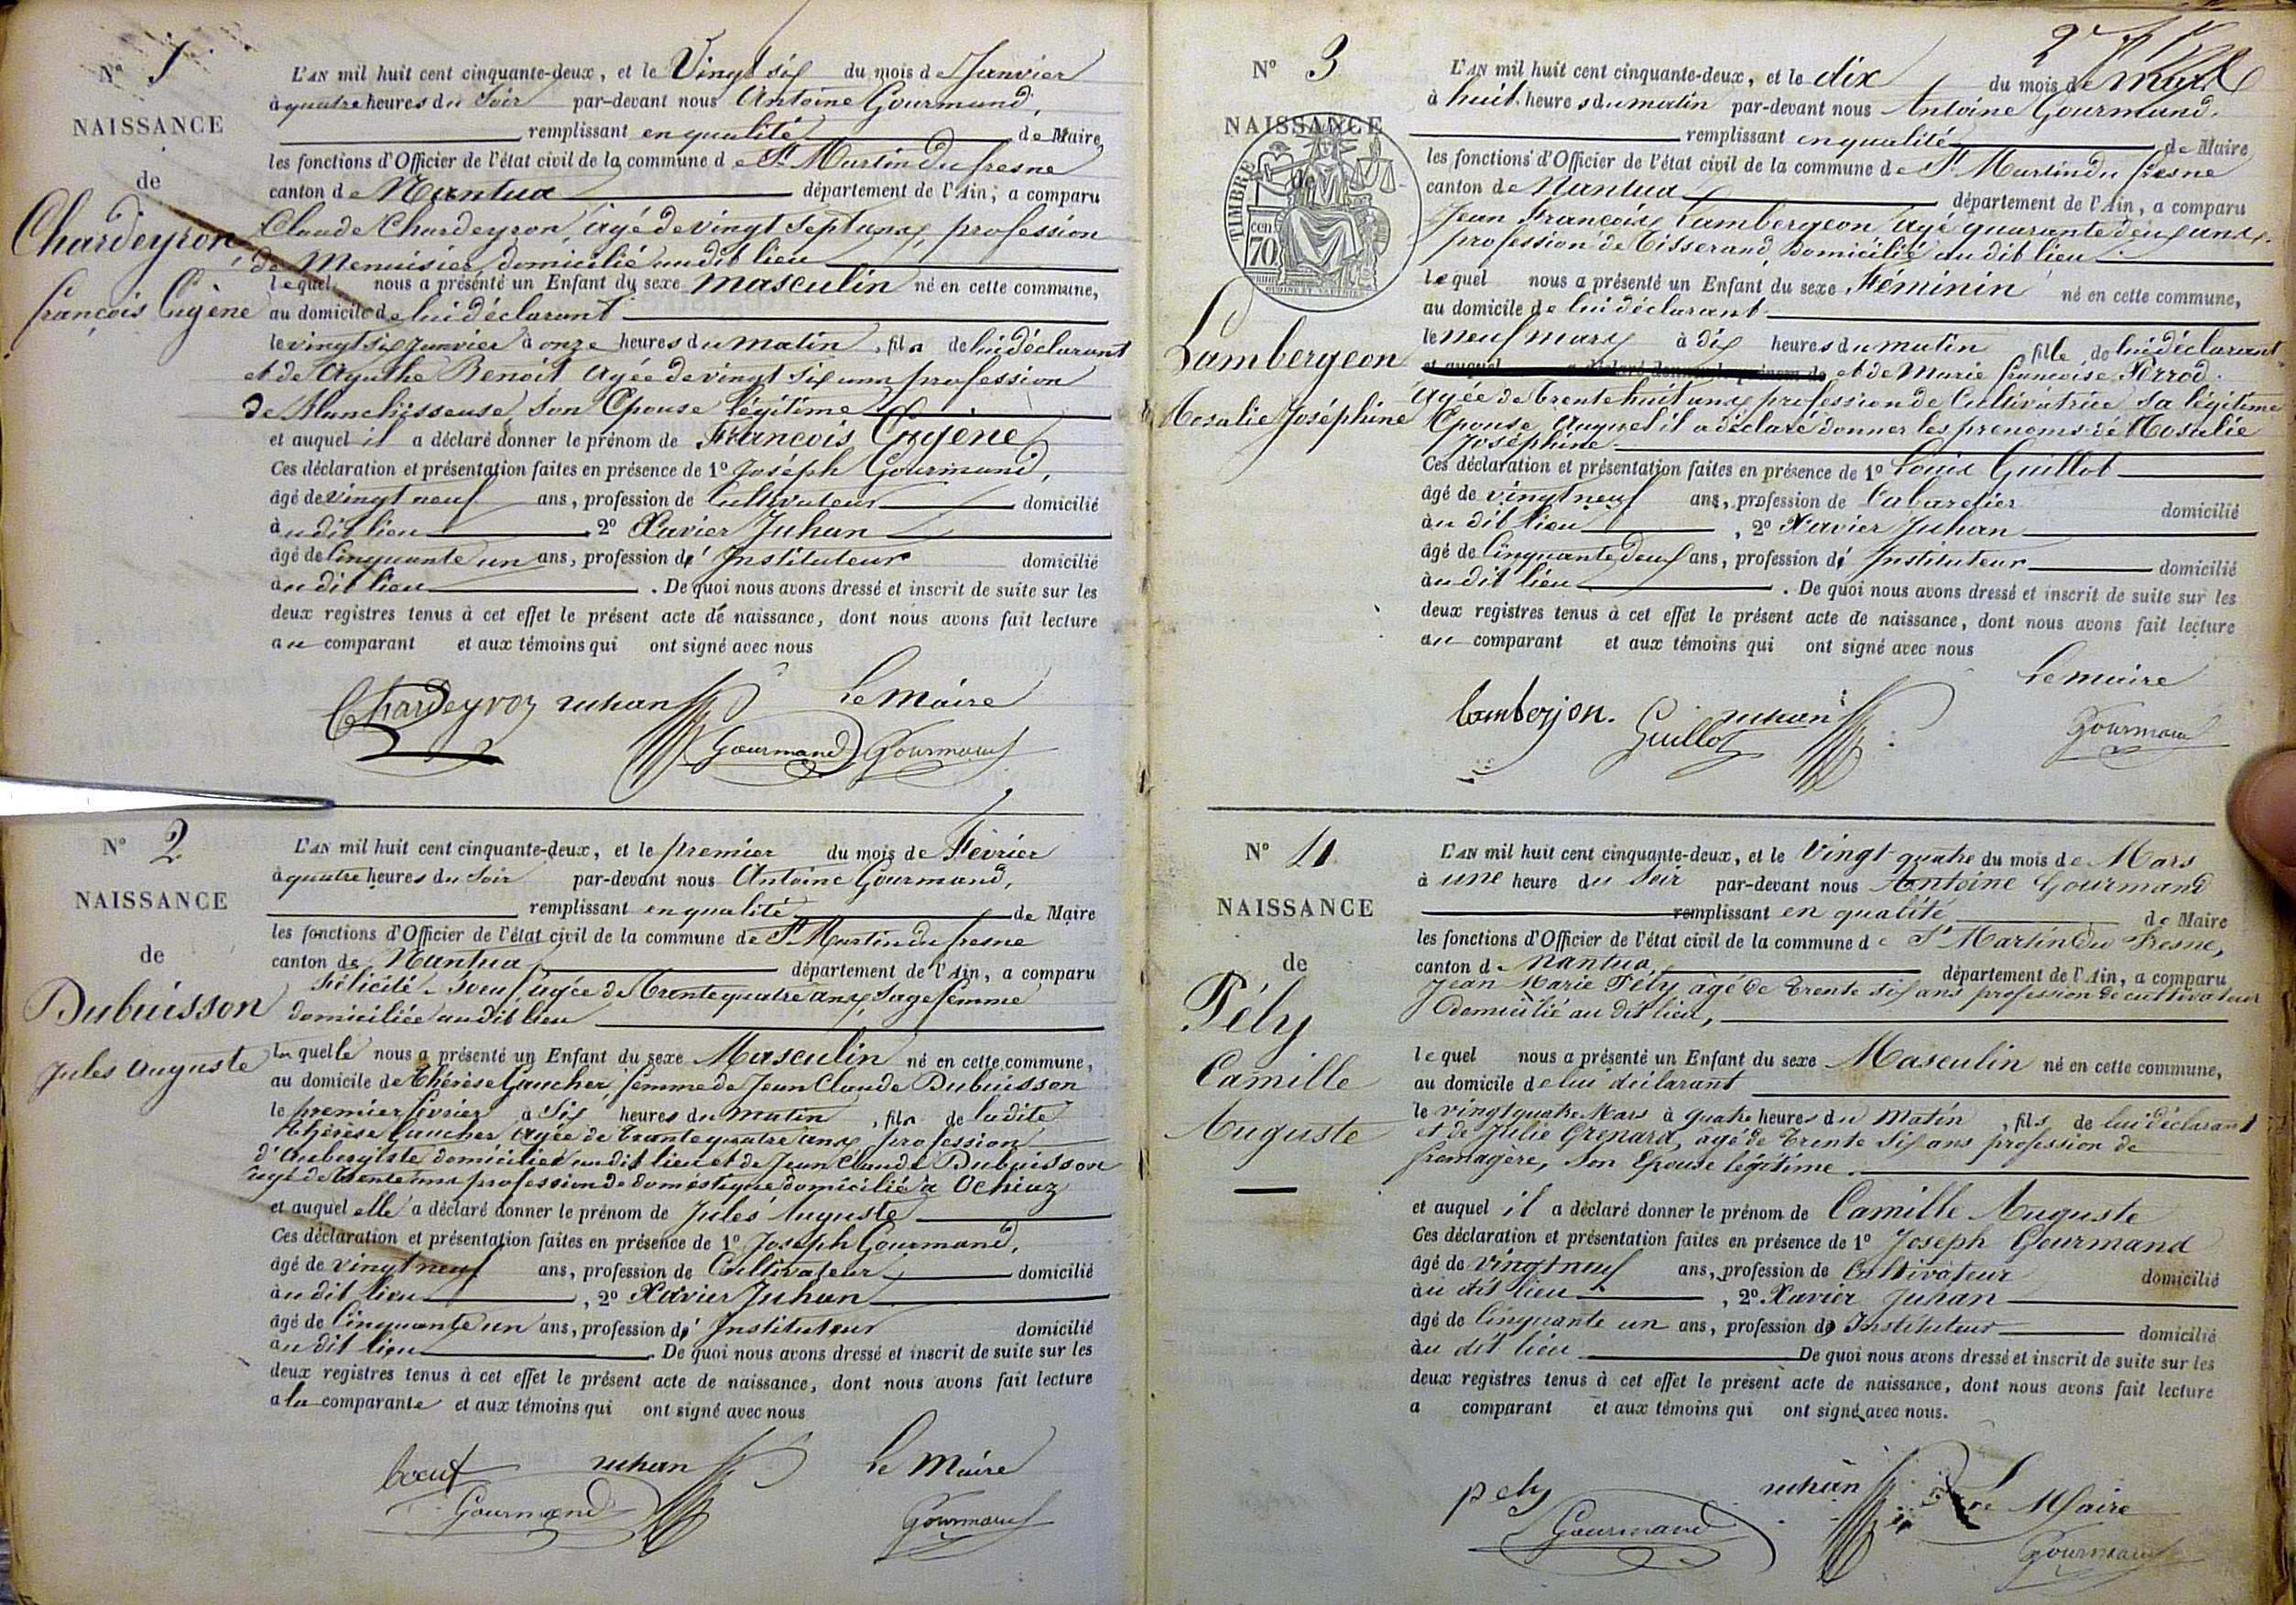 N° 1
NAISSANCE
de
Chardeyron,
françois Eugène
L'AN mil huit cent cinquante-deux, et le Vingt six du mois de Janvier
à quatre heures du Soir par-devant nous Antoine Gourmand,
remplissant en qualité de Maire,
les fonctions d'Officier de l'état civil de la commune de St Martin du fresne
canton de Nantua département de l'Ain, a comparu
Claude Chardeyron, âgé de vingt Sept ans, profession
de Menuisier, domicilié audit lieu
lequel nous a présenté un Enfant du sexe masculin né en cette commune,
au domicile de lui déclarant
le vingt six Janvier à onze heures du matin, fils de lui déclarant
et de Agathe Benoit âgée de vingt six ans profession
de Blanchisseuse, Son Epouse légitime
et auquel il a déclaré donner le prénom de François Eugène
Ces déclaration et présentation faites en présence de 1° Joséph Gourmand,
âgé de vingt neuf ans, profession de Cultivateur domicilié
à udit lieu 2° Xavier Juhan
âgé de Cinquante un ans, profession d' Instituteur domicilié
à udit lieu . De quoi nous avons dressé et inscrit de suite sur les
deux registres tenus à cet effet le présent acte de naissance, dont nous avons fait lecture
au comparant et aux témoins qui ont signé avec nous
Chardeyron juhan Le Maire
Gourmand Gourmand
N° 2
NAISSANCE
de
Dubuisson
Jules Auguste
L'AN mil huit cent cinquante-deux, et le premier du mois de Février
à quatre heures du Soir par-devant nous Antoine Gourmand,
remplissant en qualité de Maire
les fonctions d'Officier de l'état civil de la commune de St Martin du fresne
canton de Nantua, département de l'Ain, a comparu
Félicité âgée de Trente quatre ans, Sage femme
domiciliée audit lieu
laquelle nous a présenté un Enfant du sexe Masculin né en cette commune,
au domicile de Thérèse Gaucher, femme de Jean Claude Dubuisson
le premier février à Six heures du matin, fils de ladite
Thérèse Gaucher, âgée de trente quatre ans, profession
d'Aubergiste domiciliée audit lieu et de Jean Claude Dubuisson
âgé de trente ans profession de domestique domicilié à Ochiaz
et auquel elle a déclaré donner le prénom de Jules Auguste
Ces déclaration et présentation faites en présence de 1° Joseph Gourmand,
âgé de vingt neuf ans, profession de Cultivateur domicilié
à udit lieu , 2° Xavier Juhan
âgé de Cinquante un ans, profession d' Instituteur domicilié
à udit lieu . De quoi nous avons dressé et inscrit de suite sur les
deux registres tenus à cet effet le présent acte de naissance, dont nous avons fait lecture
a la comparante et aux témoins qui ont signé avec nous
boeuf juhan Le Maire
Gourmand Gourmand
N° 3
NAISSANCE
de
TIMBRE
cen
70
Lambergeon
Rosalie Joséphine
L'AN mil huit cent cinquante-deux, et le dix du mois de Mars
à huit heures du matin par-devant nous Antoine Gourmand,
remplissant en qualité de Maire
les fonctions d'Officier de l'état civil de la commune de St Martin du fresne
canton de Nantua département de l'Ain, a comparu
Jean François Lambergeon âgé quarante deux ans,
profession de Tisserand, domicilié audit lieu
lequel nous a présenté un Enfant du sexe Féminin né en cette commune,
au domicile de lui déclarant
le neuf mars à dix heures du matin fille de lui déclarant
et auquel a déclaré donner le prénom de et de Marie françoise Perrod
âgée de trente huit ans, profession de Cultivatrice Sa légitime
Epouse, Auquel il a déclaré donner les prenoms de Rosalie
Joséphine
Ces déclaration et présentation faites en présence de 1° Louis Guillot
âgé de vingt neuf ans, profession de Cabaretier domicilié
à udit lieu , 2° Xavier Juhan
âgé de Cinquante deux ans, profession d' Instituteur domicilié
à udit lieu . De quoi nous avons dressé et inscrit de suite sur les
deux registres tenus à cet effet le présent acte de naissance, dont nous avons fait lecture
au comparant et aux témoins qui ont signé avec nous
Le maire
Lamberjon. Guillot juhan Gourmand
N° 4
NAISSANCE
de
Pély
Camille
Auguste
L'AN mil huit cent cinquante-deux, et le Vingt quatre du mois de Mars
à une heure du Soir par-devant nous Antoine Gourmand
remplissant en qualité de Maire
les fonctions d'Officier de l'état civil de la commune de St Martin Du Fresne,
canton de Nantua, département de l'Ain, a comparu
Jean Marie Pély âgé de trente six ans profession de cultivateur
Domicilié au dit lieu,
lequel nous a présenté un Enfant du sexe Masculin né en cette commune,
au domicile de lui déclarant
le vingt quatre Mars à quatre heures du Matin, fils de lui déclarant
et de Julie Grenard, âgé de trente six ans profession de
fromagère, Son Epouse légitime.
et auquel il a déclaré donner le prénom de Camille Auguste
Ces déclaration et présentation faites en présence de 1° Joseph Gourmand
âgé de vingt neuf ans, profession de Cultivateur domicilié
à u dit lieu , 2° Xavier Juhan
âgé de Cinquante un ans, profession d' Instituteur domicilié
à u dit lieu De quoi nous avons dressé et inscrit de suite sur les
deux registres tenus à cet effet le présent acte de naissance, dont nous avons fait lecture
a comparant et aux témoins qui ont signé avec nous.
pely juhan Le Maire
Gourmand Gourmand